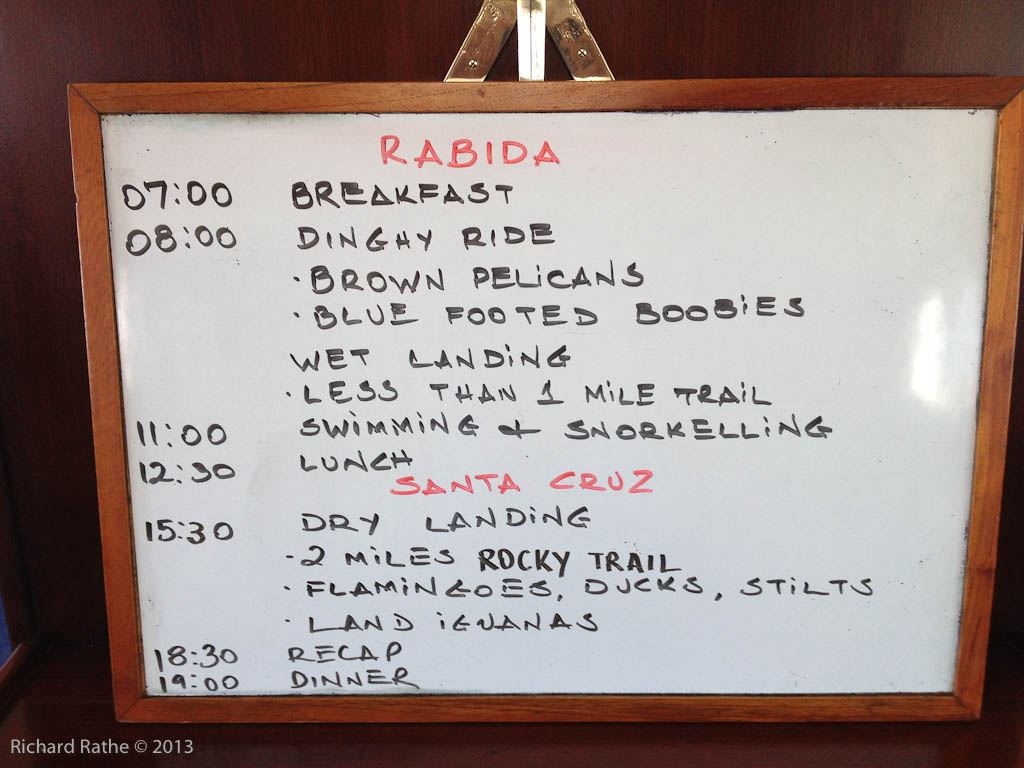 RABIDA
07:00 BREAKFAST
08:00 DINGHY RIDE
· BROWN PELiCANS
· BLUE FOOTED BOOBiES
WET LANDiNG
· LESS THAN 1 MiLE TRAiL
11:00 SWiMMiNG & SNORKELLiNG
12:30 LUNCH
SANTA CRUZ
15:30 DRY LANDiNG
- 2 MiLES ROCKY TRAIL
· FLAMiNGOES, DUCKS, STiLTS
· LAND iGUANAS
18:30 RECAP
19:00 DINNER
Richard Rathe © 2013